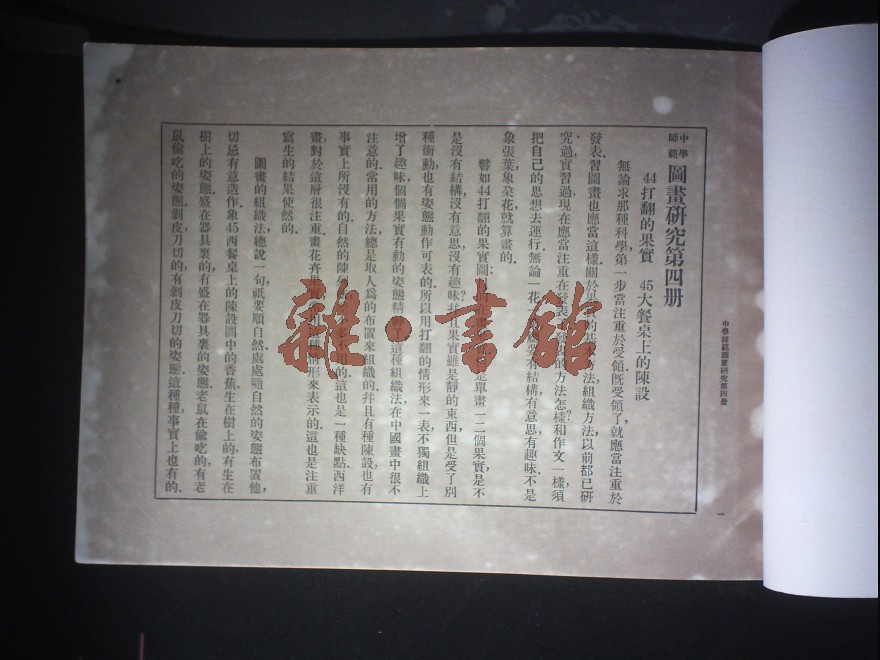 中學師範圖畫研究第四册
44打翻的果實　45大餐桌上的陳設
無論求那種科學，第一步當注重於受領，既受領了，就應當注重於
發表，習圖畫也應當這樣，關於果實的基本方法，組織方法，以前都已研
究過，實習過，現在應當注重在發表，發表的方法怎樣？和作文一樣，須
把自己的思想去運行，無論一花一果，總要有結構，有意思，有趣味，不是
象張葉，象朶花，就算畫的．
譬如44打翻的果實圖，是單畫一二個果實，是不
是沒有結構，沒有意思，沒有趣味？并且果實雖是靜的東西，但是受了別
種衝動，也有姿態動作可表的，所以用打翻的情形來一表，不獨組織上
增了趣味，個個果實有動的姿態精神了，這種組織法，在中國畫中很不
注意的，常用的方法，總是取人爲的布置來組織的，并且有種陳設，也有
事實上所沒有的，自然的陳列用的，這也是一種缺點，西洋
畫對於這層很注重，畫花卉情形來表示的，這也是注重
寫生的結果使然的．
圖畫的組織法，總說一句，祇要順自然，處處隨自然的姿態布置他，
切忌有意造作，象45西餐桌上的陳設圖中的香蕉，生在樹上的，有生在
樹上的姿態，盛在器具裏的，有盛在器具裏的姿態，老鼠在偸吃的，有老
鼠偸吃的姿態，剝皮刀切的，有剝皮刀切的姿態，這種種，事實上也有的，
中學師範圖畫研究第四册
一
雜·書館